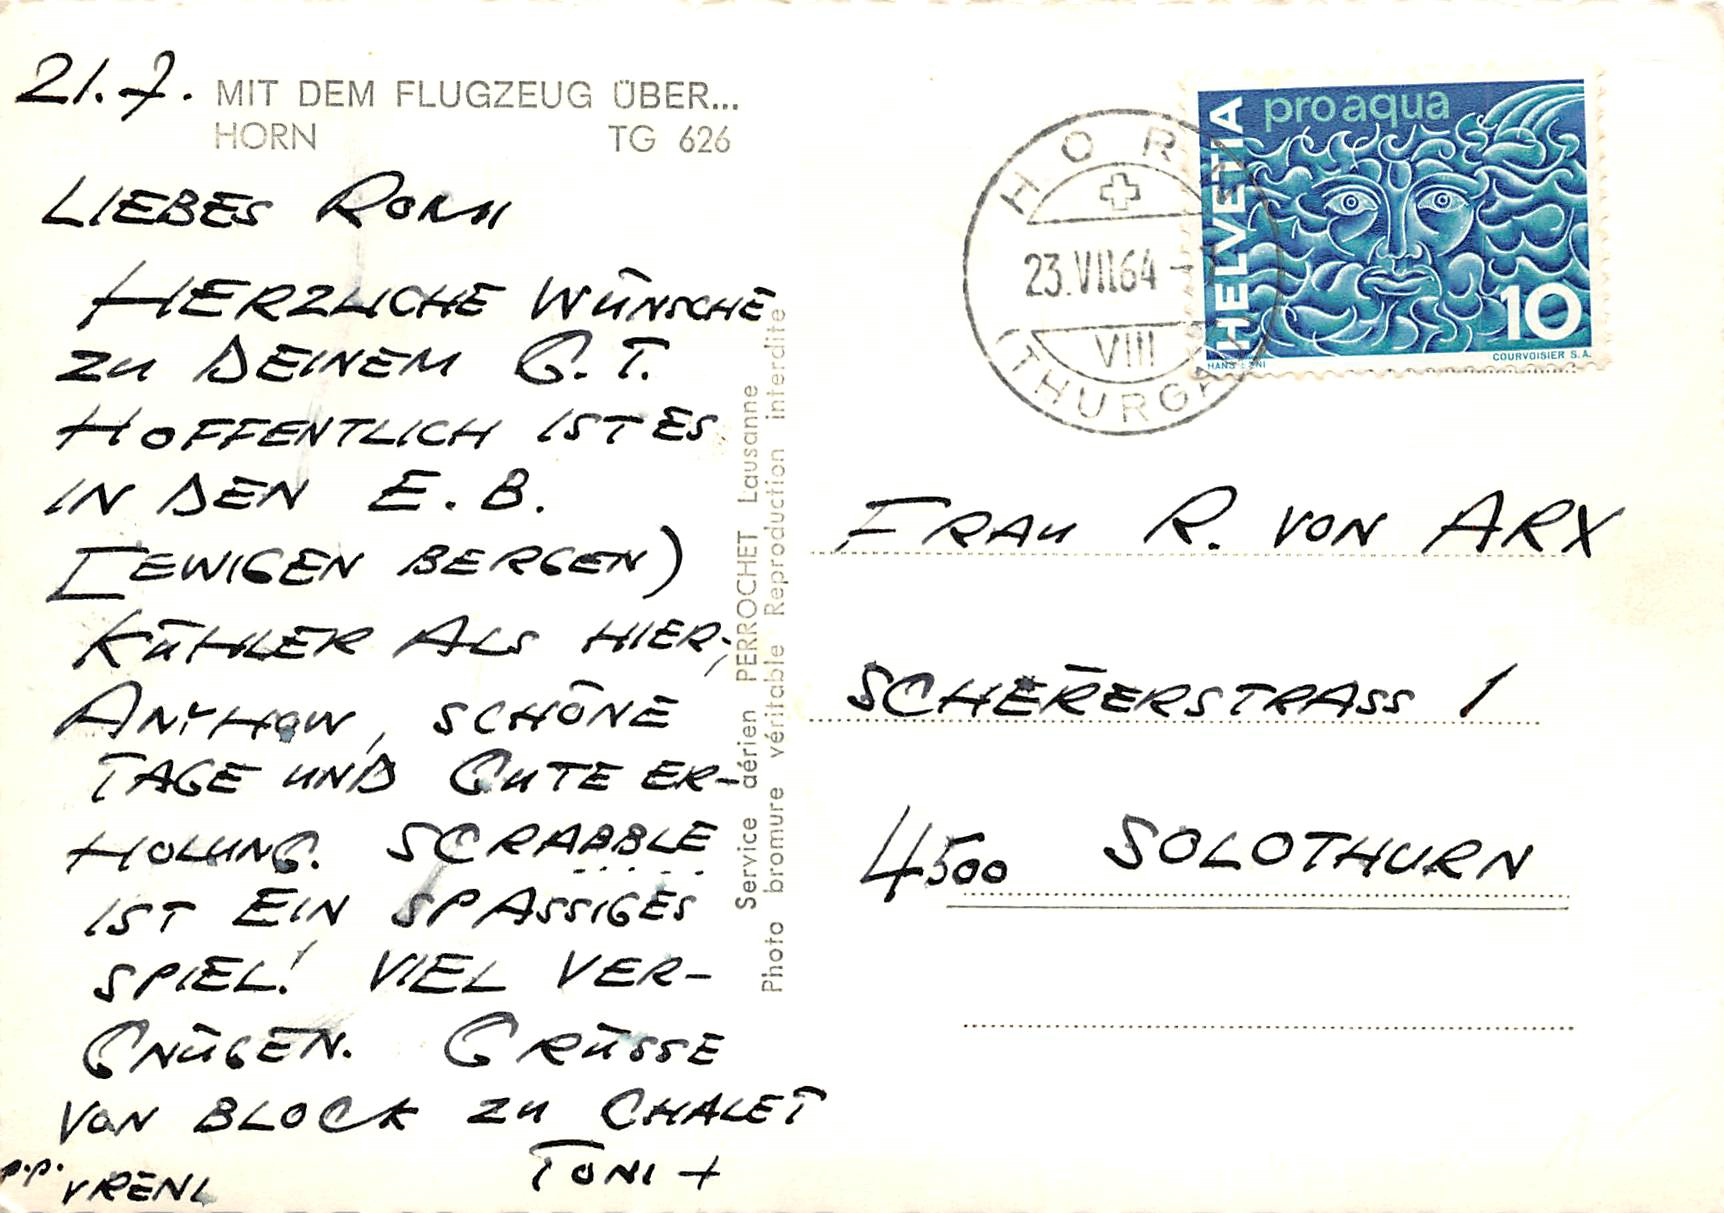 21.7.
MIT DEM FLUGZEUG ÜBER...
HORN TG 626
LIEBES ROMI
HERZLICHE WÜNSCHE
ZU DEINEM G.T.
HOFFENTLICH IST ES
IN DEN E.B.
(EWIGEN BERGEN)
KÜHLER ALS HIER,
ANYHOW, SCHÖNE
TAGE UND GUTE ER-
HOLUNG. SCRABBLE
IST EIN SPASSIGES
SPIEL! VIEL VER-
GNÜGEN. GRÜSSE
VON BLOCK ZU CHALET
TONI +
p.p. VRENI
Service aérien PERROCHET Lausanne
Photo bromure véritable Reproduction interdite
HORN
23.VII.64
VIII
(THURGAU)
HELVETIA
pro aqua
10
HANS ERNI
COURVOISIER S.A.
FRAU R. VON ARX
SCHERERSTRASS 1
4500 SOLOTHURN